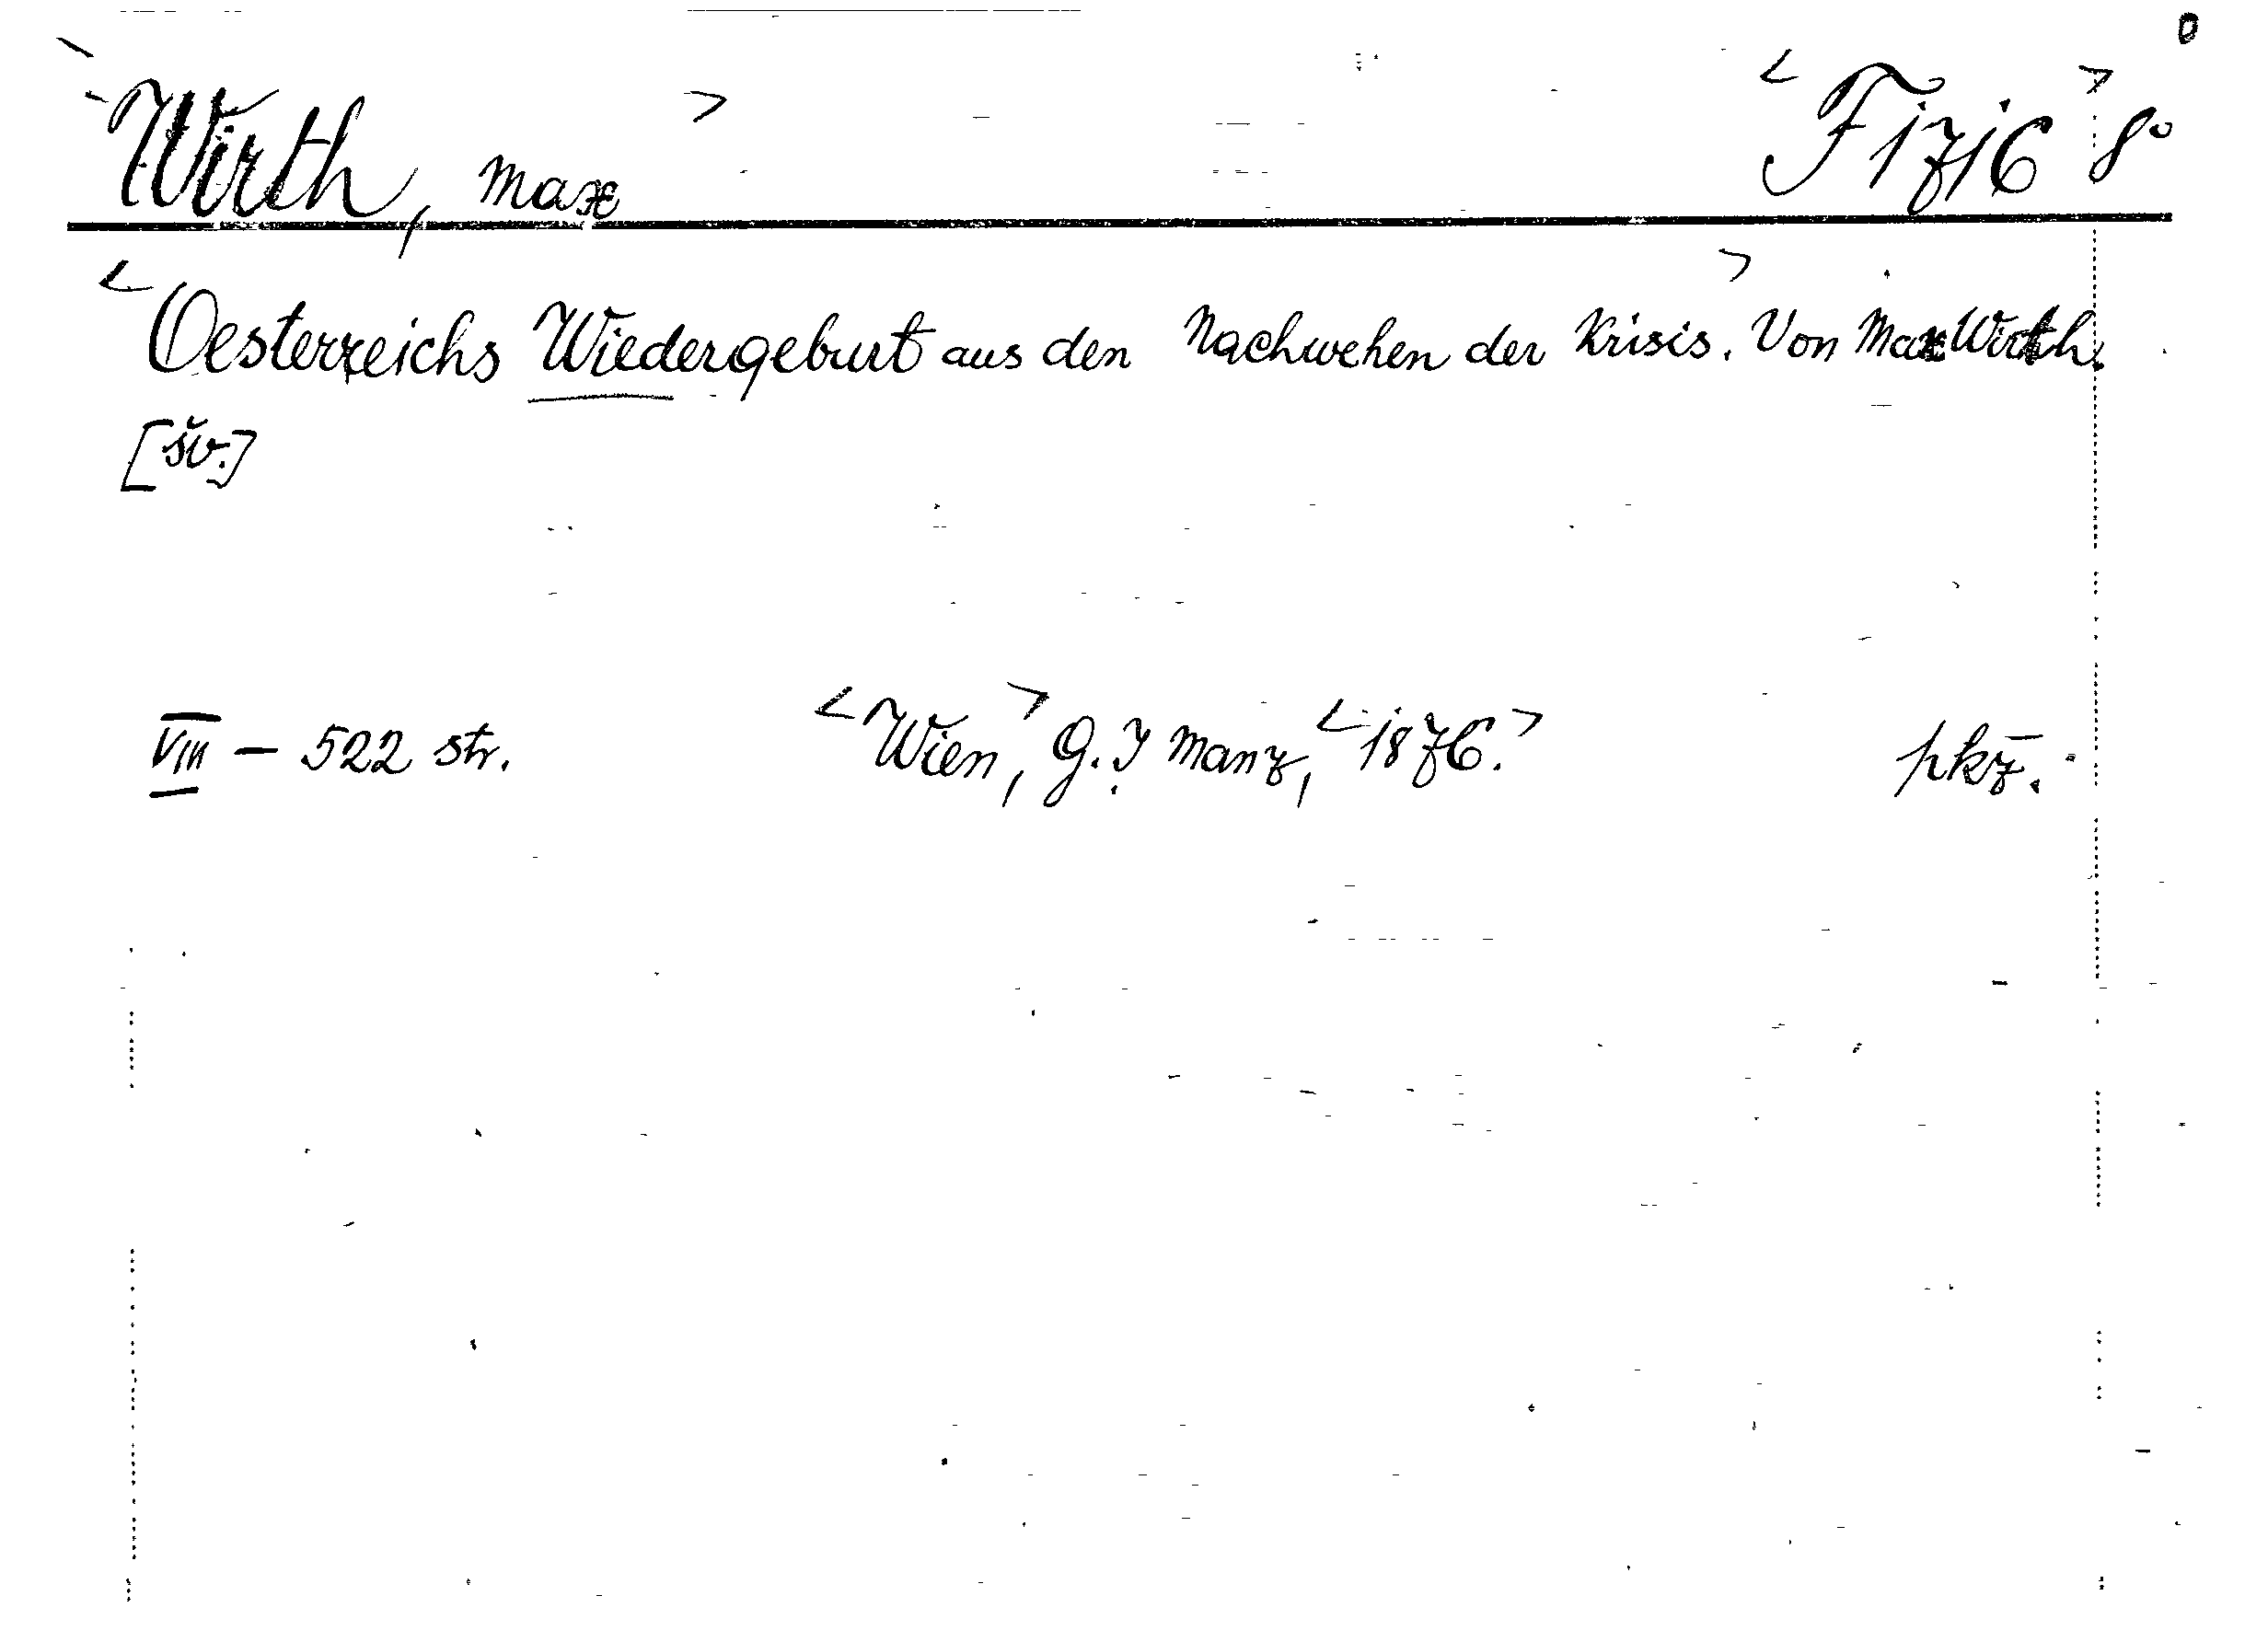 <Wirth, Max> <F 1716> 8°
<Oesterreichs Wiedergeburt aus den Nachwehen der Krisis.> Von Max Wirth.
[šv.]
VIII — 522 str. <Wien,> G. J. Manz, <1876.> pkž.